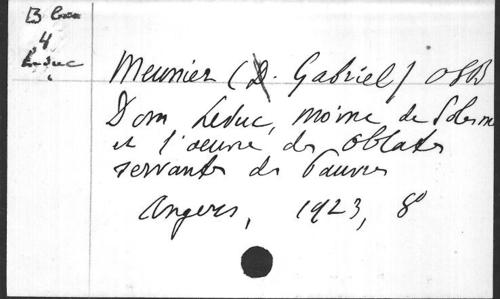 B
4
Leduc
Meunier (D. Gabriel) OSB
Dom Leduc, moine de Solesmes
et l'oeuvre des Oblates
servantes des Pauvres
Angers, 1923, 8°